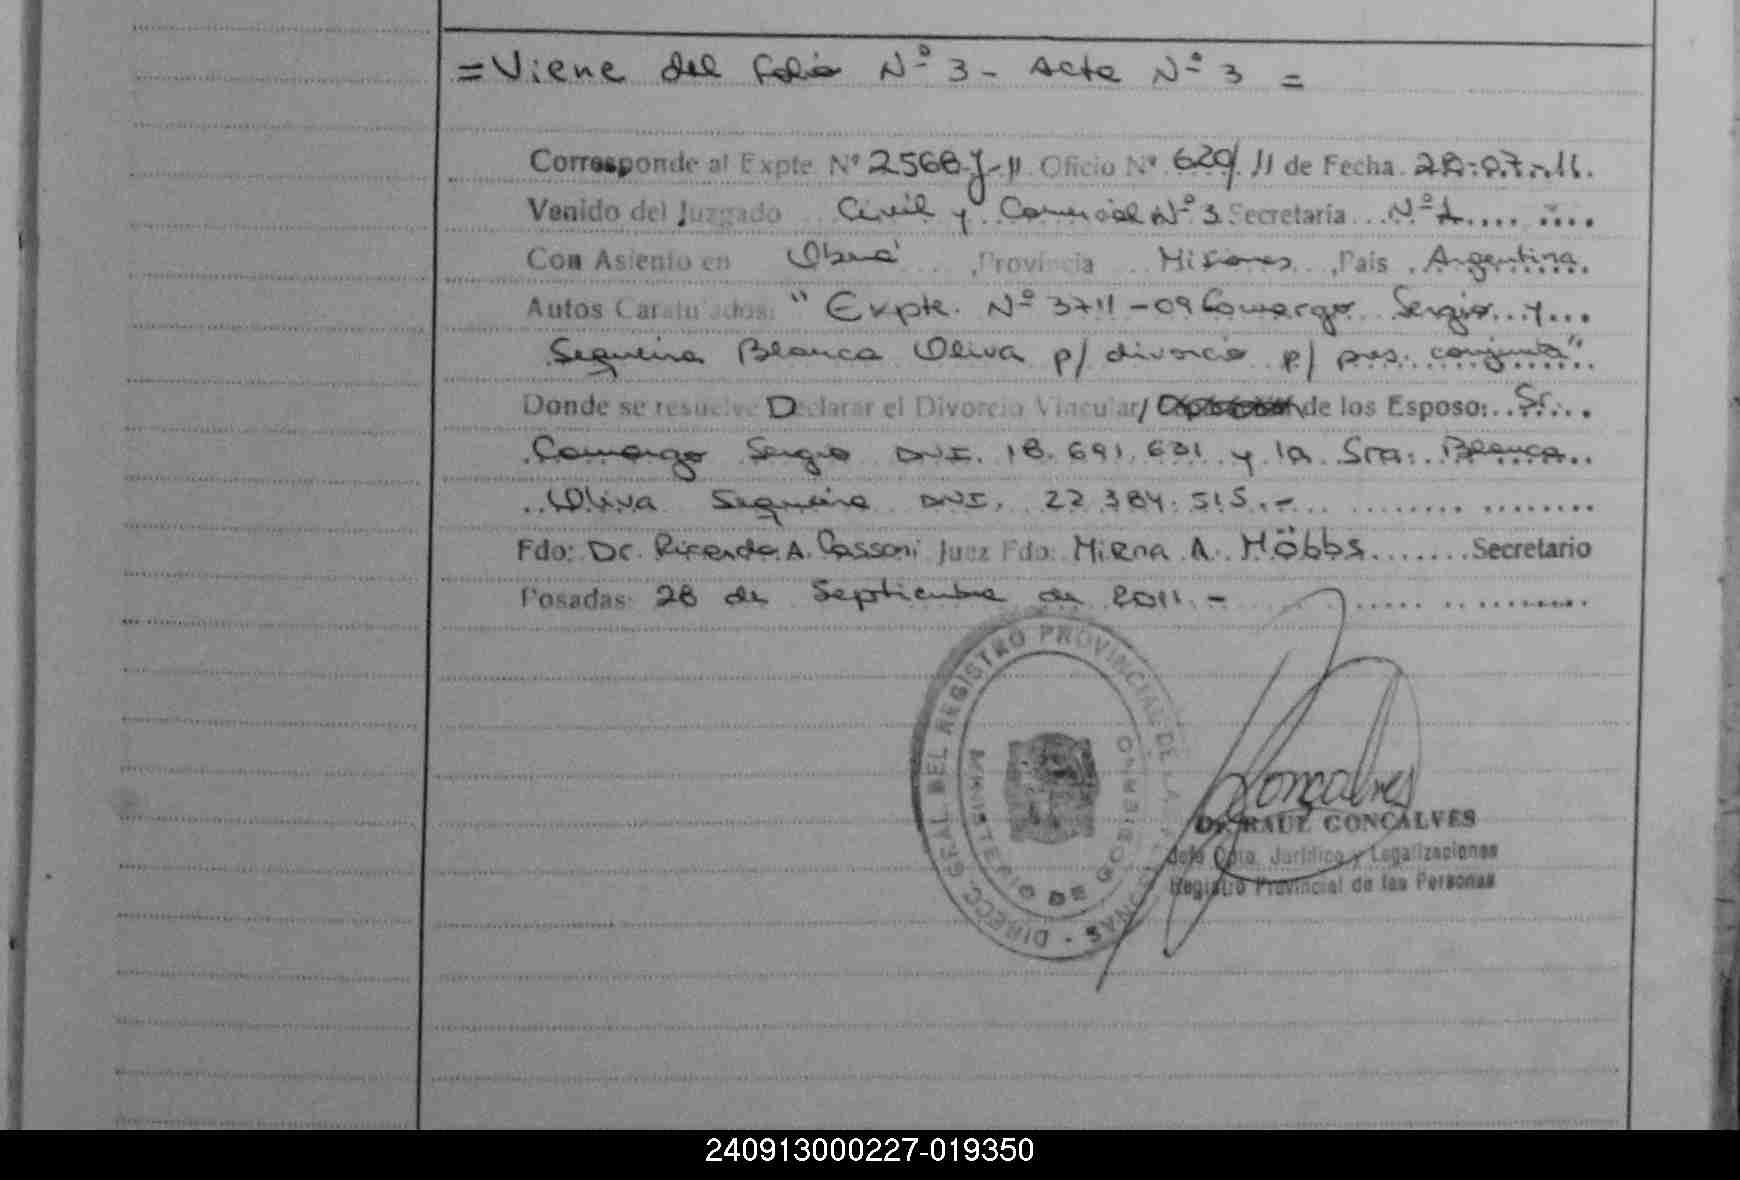 = Viene del folio Nº 3 - Acta Nº 3 =
Corresponde al Expte Nº 2568-J-11 Oficio Nº 629/11 de Fecha 28-07-11.
Venido del Juzgado Civil y Comercial Nº 3 Secretaría Nº 1
Con Asiento en Oberá, Provincia Misiones, País Argentina
Autos Caratulados: "Expte. Nº 3711-09 Camargo Sergio y
Sequeira Blanca Oliva p/ divorcio p/ pres. conjunta"
Donde se resuelve Declarar el Divorcio Vincular/ de los Esposo: Sr.
Camargo Sergio DNI. 18.691.631 y la Sra. Blanca
Oliva Sequeira DNI. 22.384.515.-
Fdo: Dr. Ricardo A. Cassoni Juez Fdo: Mirna A. Höbbs Secretario
Posadas: 28 de Septiembre de 2011.-
DIRECC. GRAL. DEL REGISTRO PROVINCIAL DE LAS PERSONAS -
MINISTERIO DE GOBIERNO
Gonçalves
Dr. RAUL GONÇALVES
Jefe Dpto. Jurídico y Legalizaciones
Registro Provincial de las Personas
240913000227-019350